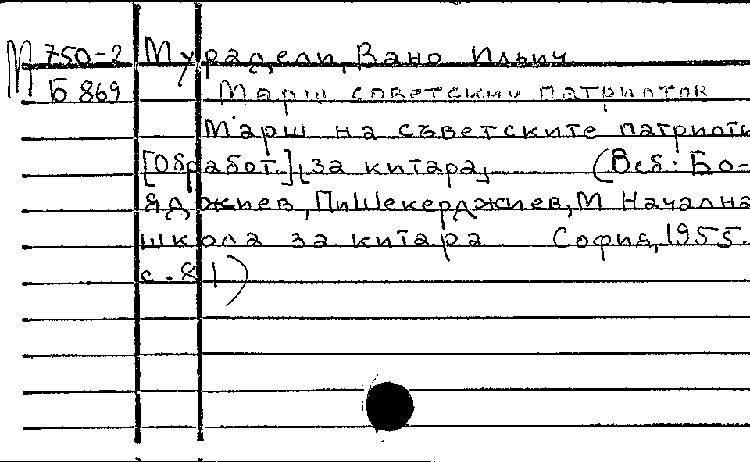 М 750-2 Мурадели, Вано Ильич
Б 869 Марш советских патриотов
Марш на съветските патриоти
[Обработ.] за китара,   (В сб: Бо-
яджиев, П и Шекерджиев, М Начална
школа за китара   София, 1955.
с. 81)